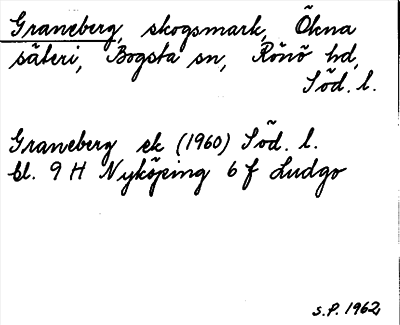 Graneberg, skogsmark, Ökna
säteri, Bogsta sn, Rönö hd,
Söd. l.
Graneberg ek (1960) Söd. l.
bl. 9 H Nyköping 6 f Ludgo
S.P. 1962